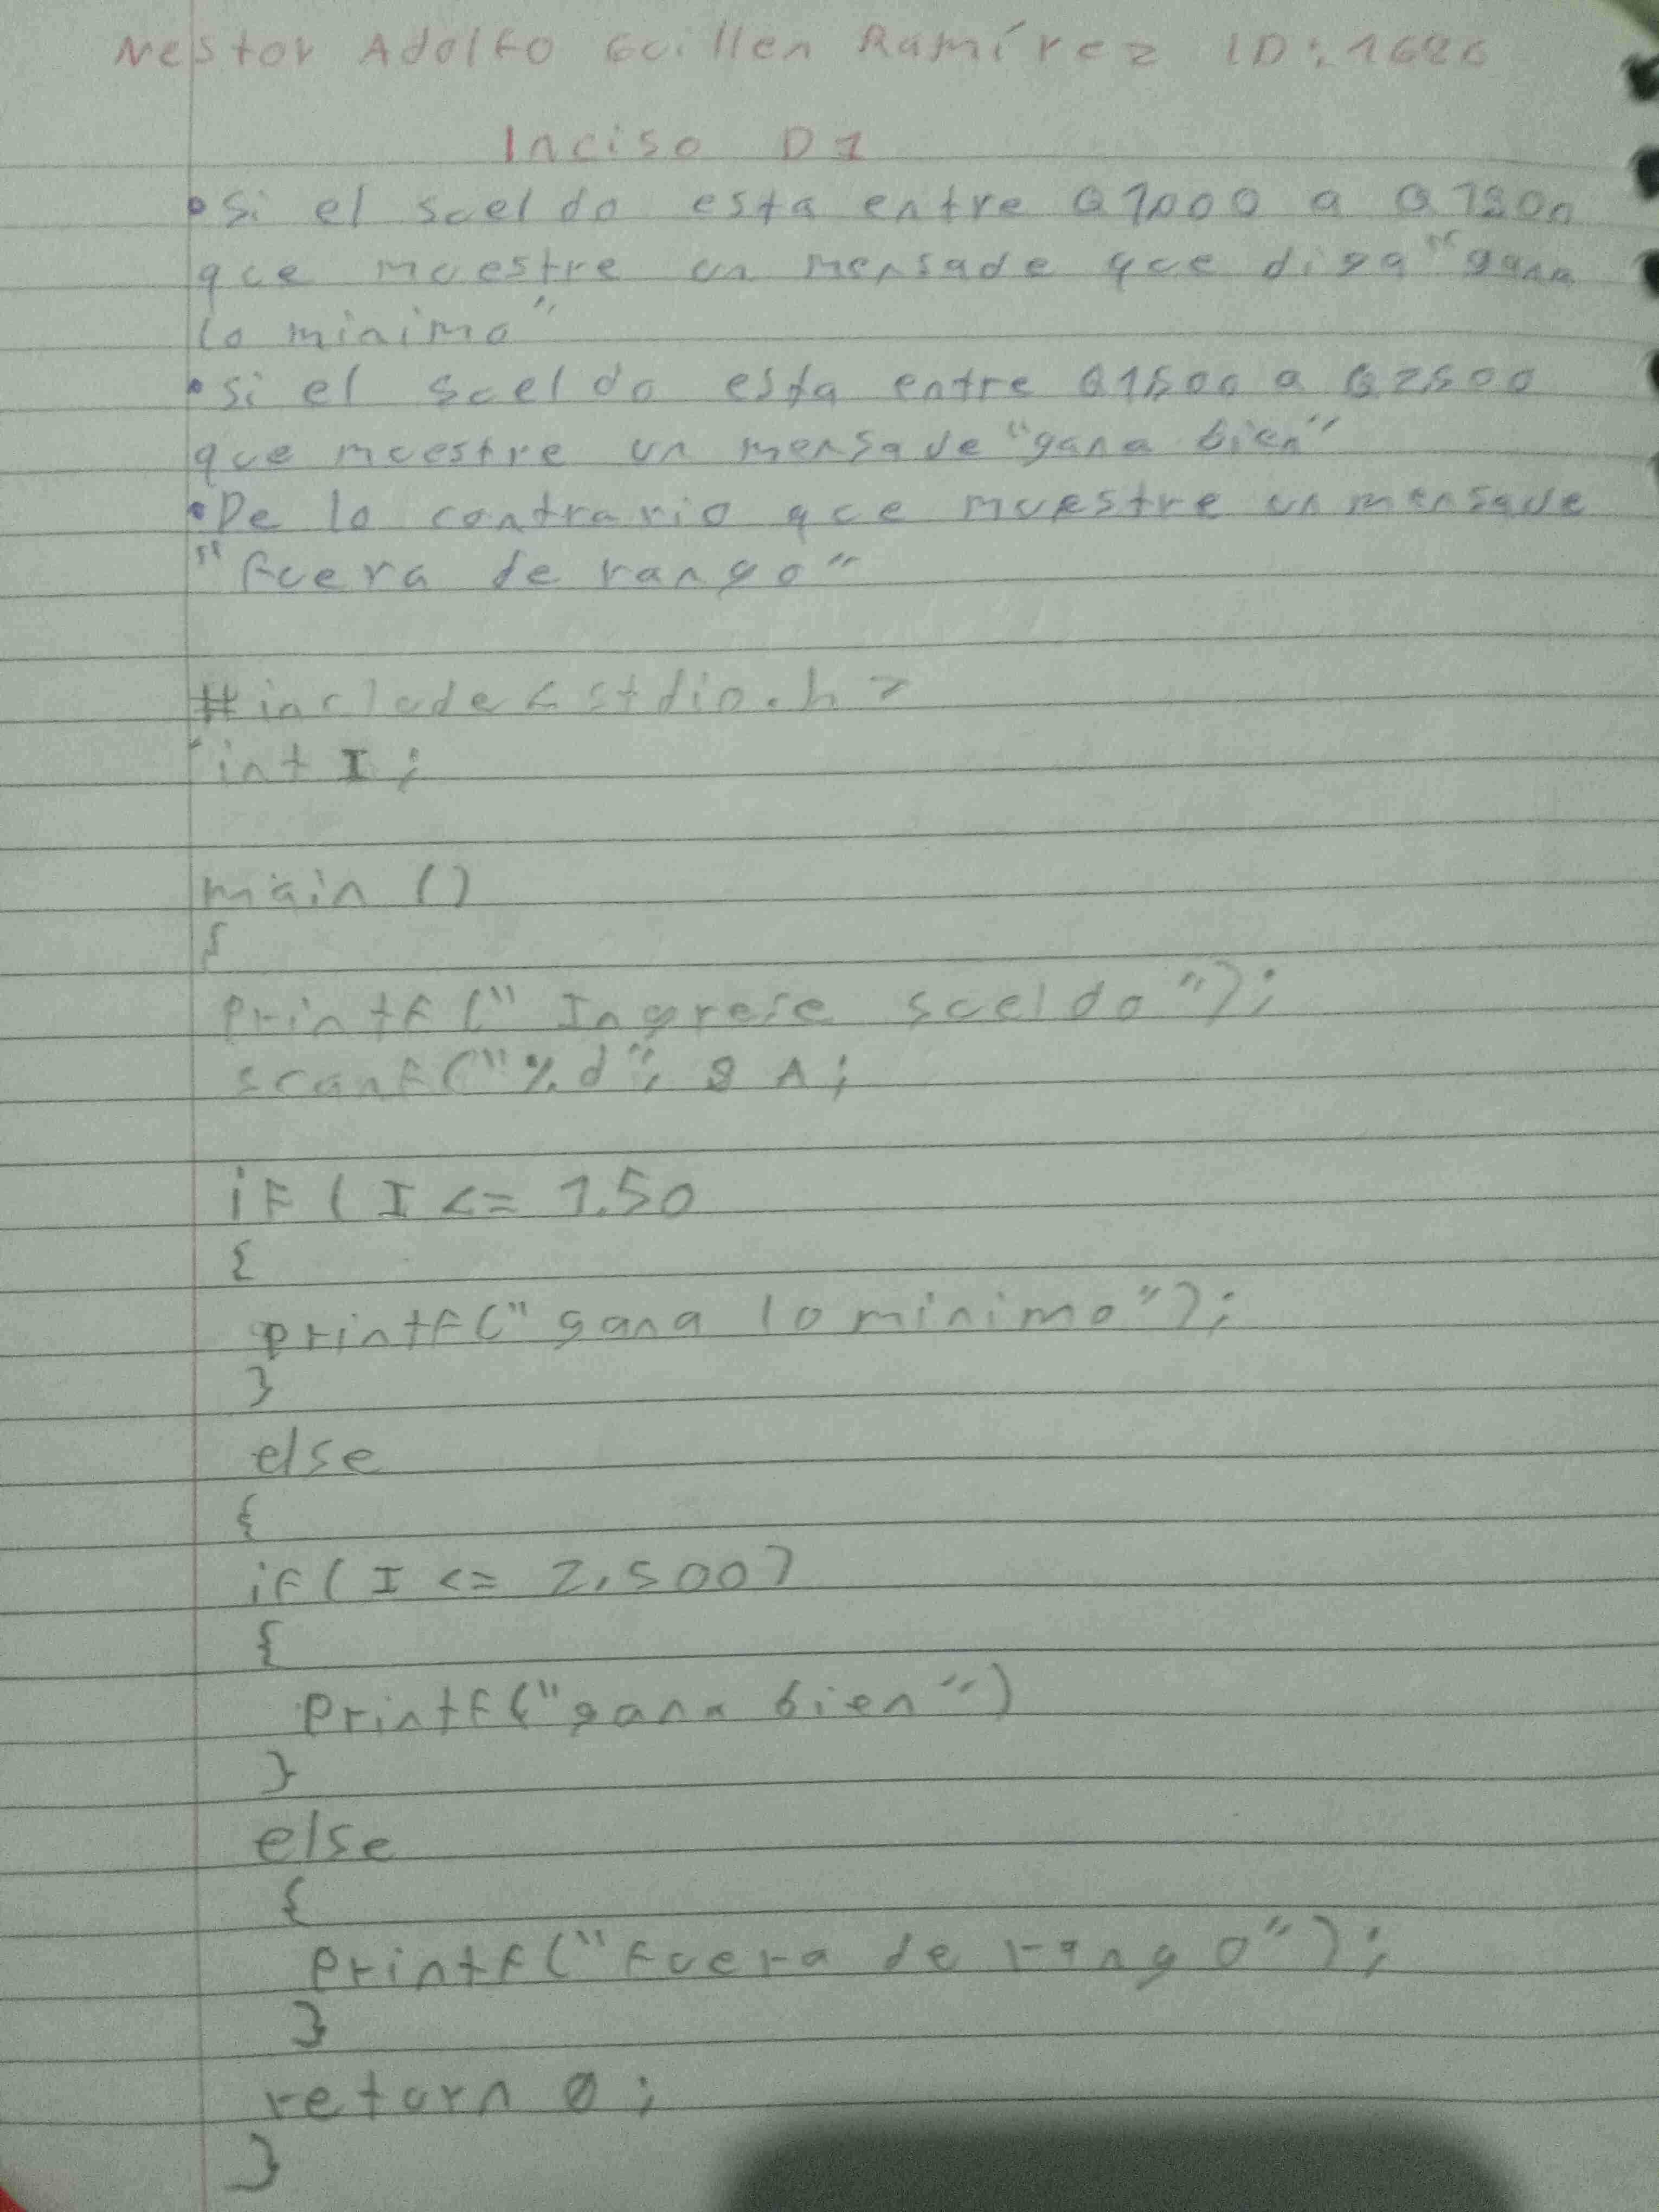 Nestor Adolfo Guillen Ramírez ID: 1686
Inciso D1
• Si el sueldo esta entre Q1,000 a Q1500
que muestre un mensaje que diga "gana
lo minimo"
• Si el sueldo esta entre Q1,500 a Q2,500
que muestre un mensaje "gana bien"
• De lo contrario que muestre un mensaje
"fuera de rango"
#include <stdio.h>
int I ;
main ()
{
printf (" Ingrese sueldo ");
scanf ("%d", & A ;
if ( I <= 1.50
{
printf(" gana lo minimo");
}
else
{
if ( I <= 2,500)
{
printf ("gana bien")
}
else
{
printf ("Fuera de rango");
}
return 0 ;
}